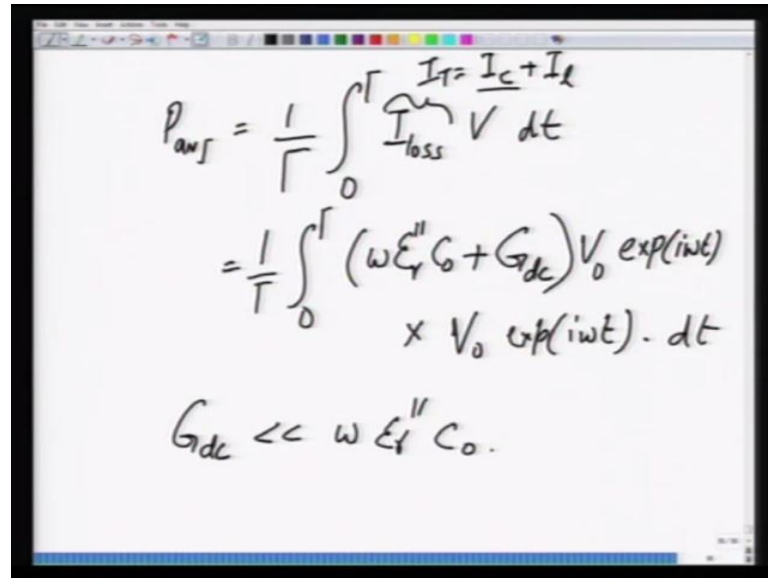 I_T = I_c + I_l
P_avg = 1/T ∫_0^T I_loss V dt
= 1/T ∫_0^T (ω ε_r'' C_0 + G_dc) V_0 exp(iωt)
× V_0 exp(iωt) . dt
G_dc << ω ε_r'' C_0 .